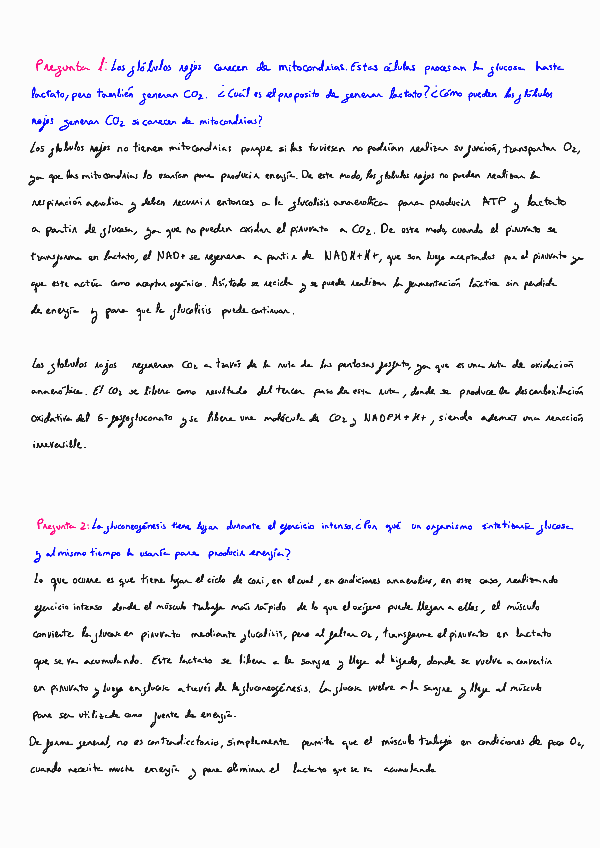 Pregunta 1: Los glóbulos rojos carecen de mitocondrias. Estas células procesan la glucosa hasta
lactato, pero también generan CO2. ¿Cuál es el proposito de generar lactato? ¿Cómo pueden los glóbulos
rojos generar CO2 si carecen de mitocondrias?
Los globulos rojos no tienen mitocondrias porque si las tuviesen no podrían realizar su función, transportar O2,
ya que las mitocondrias lo usarían para producir energía. De este modo, los globulos rojos no pueden realizar la
respiración aerobia y deben recurrir entonces a la glucolisis anaerobica para producir ATP y lactato
a partir de glucosa, ya que no pueden oxidar el piruvato a CO2. De este modo, cuando el piruvato se
transforma en lactato, el NAD+ se regenera a partir de NADH+H+, que son luego aceptados por el piruvato ya
que este actúa como aceptor orgánico. Así, todo se recicla y se puede realizar la fermentación láctica sin perdida
de energía y para que la glucolisis puede continuar.
Los globulos rojos regeneran CO2 a través de la ruta de las pentosas fosfato, ya que es una ruta de oxidación
anaeróbica. El CO2 se libera como resultado del tercer paso de esta ruta, donde se produce la descarboxilación
oxidativa del 6-fosfogluconato y se libera una molécula de CO2 y NADPH+H+, siendo además una reacción
irreversible.
Pregunta 2: La gluconeogénesis tiene lugar durante el ejercicio intenso. ¿Por qué un organismo sintetizaría glucosa
y al mismo tiempo la usaría para producir energía?
Lo que ocurre es que tiene lugar el ciclo de cori, en el cual, en condiciones anaerobias, en este caso, realizando
ejercicio intenso donde el músculo trabaja más rápido de lo que el oxígeno puede llegar a ellos, el músculo
convierte la glucosa en piruvato mediante glucolisis, pero al faltar O2, transforma el piruvato en lactato
que se va acumulando. Este lactato se libera a la sangre y llega al hígado, donde se vuelve a convertir
en piruvato y luego en glucosa a través de la gluconeogénesis. La glucosa vuelve a la sangre y llega al músculo
para ser utilizada como fuente de energía.
De forma general, no es contradictorio, simplemente permite que el músculo trabaje en condiciones de poco O2,
cuando necesita mucha energía y para eliminar el lactato que se va acumulando